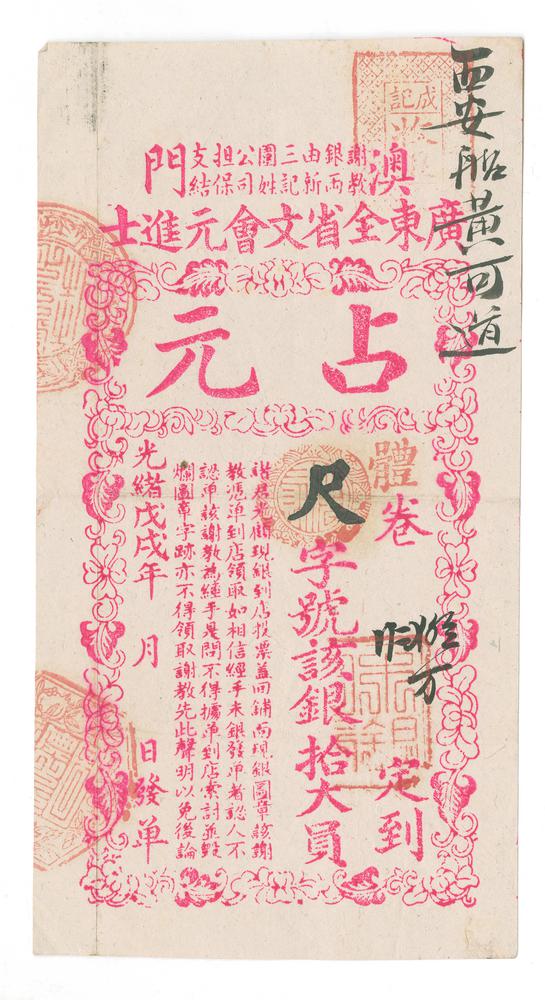 西安船黃可道
成記
澳門
謝教銀兩由新三記圍姓公司担保支結
廣東全省文會元進士
占元
體卷
定到
尺字號該銀拾大員
諸君光顧現銀到店投票蓋回鋪面現銀圖章該謝
教憑單到店領取如相信經手未銀發單者認人不
認單該謝教為經手是問不得據單到店索討並毀
爛圖章字跡亦不得領取謝教先此聲明以免後論
光緒戊戌年 月 日發單